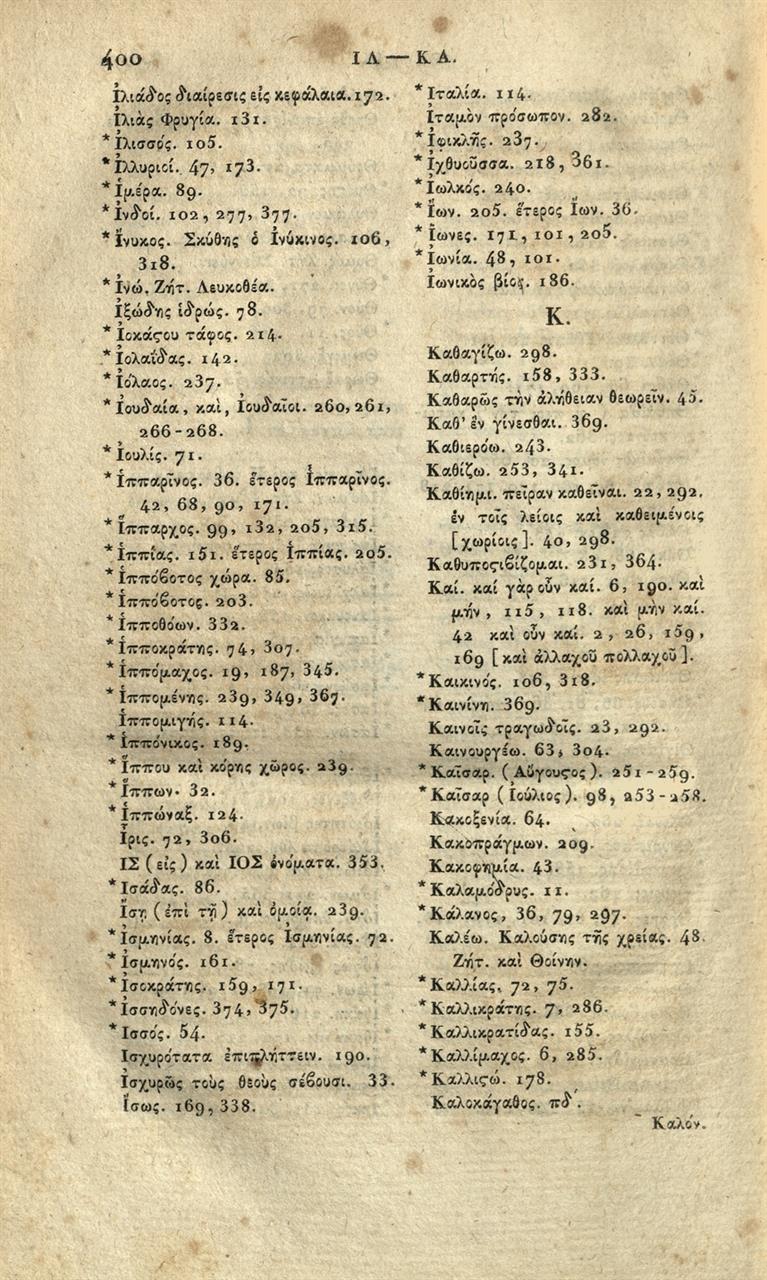 400
ΙΛ — ΚΑ.
Ἰλιάδος διαίρεσις εἰς κεφάλαια. 172.
Ἰλιὰς Φρυγία. 131.
* Ἰλισσός. 105.
* Ἰλλυριοί. 47, 173.
* Ἱμέρα. 89.
* Ἰνδοί. 102, 277, 377.
* Ἴνυκος. Σκύθης ὁ Ἰνύκινος. 106,
318.
* Ἰνώ. Ζήτ. Λευκοθέα.
Ἰξώδης ἱδρώς. 78.
* Ἰοκάϛου τάφος. 214.
* Ἰολαΐδας. 142.
* Ἰόλαος. 237.
* Ἰουδαία, καὶ, Ἰουδαῖοι. 260, 261,
266-268.
* Ἰουλίς. 71.
* Ἱππαρῖνος. 36. ἕτερος Ἱππαρῖνος.
42, 68, 90, 171.
* Ἵππαρχος. 99, 132, 205, 315.
* Ἱππίας. 151. ἕτερος Ἱππίας. 205.
* Ἱππόϐοτος χώρα. 85.
* Ἱππόϐοτος. 203.
* Ἱπποθόων. 332.
* Ἱπποκράτης. 74, 307.
* Ἱππόμαχος. 19, 187, 345.
* Ἱππομένης. 239, 349, 367.
Ἱππομιγής. 114.
* Ἱππόνικος. 189.
* Ἵππου καὶ κόρης χῶρος. 239.
* Ἵππων. 32.
* Ἱππώναξ. 124.
Ἶρις. 72, 306.
ΙΣ (εἰς) καὶ ΙΟΣ ὀνόματα. 353.
* Ἰσάδας. 86.
Ἴσῃ (ἐπὶ τῇ) καὶ ὁμοίᾳ. 239.
* Ἰσμηνίας. 8. ἕτερος Ἰσμηνίας. 72.
* Ἰσμηνός. 161.
* Ἰσοκράτης. 159, 171.
* Ἰσσηδόνες. 374, 375.
* Ἰσσός. 54.
Ἰσχυρότατα ἐπιπλήττειν. 190.
Ἰσχυρῶς τοὺς θεοὺς σέϐουσι. 33.
Ἴσως. 169, 338.
* Ἰταλία. 114.
Ἰταμὸν πρόσωπον. 282.
* Ἰφικλῆς. 237.
* Ἰχθυοῦσσα. 218, 361.
* Ἰωλκός. 240.
* Ἴων. 205. ἕτερος Ἴων. 36.
* Ἴωνες. 171, 101, 205.
* Ἰωνία. 48, 101.
Ἰωνικὸς βίος. 186.
Κ.
Καθαγίζω. 298.
Καθαρτής. 158, 333.
Καθαρῶς τὴν ἀλήθειαν θεωρεῖν. 45.
Καθ' ἓν γίνεσθαι. 369.
Καθιερόω. 243.
Καθίζω. 253, 341.
Καθίημι. πεῖραν καθεῖναι. 22, 292.
ἐν τοῖς λείοις καὶ καθειμένοις
[χωρίοις]. 40, 298.
Καθυποϛιϐίζομαι. 231, 364.
Καί. καί γὰρ οὖν καί. 6, 190. καὶ
μήν, 115, 118. καὶ μὴν καί.
42 καὶ οὖν καί. 2, 26, 159,
169 [καὶ ἀλλαχοῦ πολλαχοῦ].
* Καικινός. 106, 318.
* Καινίνη. 369.
Καινοῖς τραγωδοῖς. 23, 292.
Καινουργέω. 63, 304.
* Καῖσαρ. (Αὔγουϛος). 251-259.
* Καῖσαρ (Ἰούλιος). 98, 253-258.
Κακοξενία. 64.
Κακοπράγμων. 209.
Κακοφημία. 43.
* Καλαμόδρυς. 11.
* Κάλανος, 36, 79, 297.
Καλέω. Καλούσης τῆς χρείας. 48.
Ζήτ. καὶ Θοίνην.
* Καλλίας. 72, 75.
* Καλλικράτης. 7, 286.
* Καλλικρατίδας. 155.
* Καλλίμαχος. 6, 285.
* Καλλιϛώ. 178.
Καλοκάγαθος. πδ΄.
Καλόν.